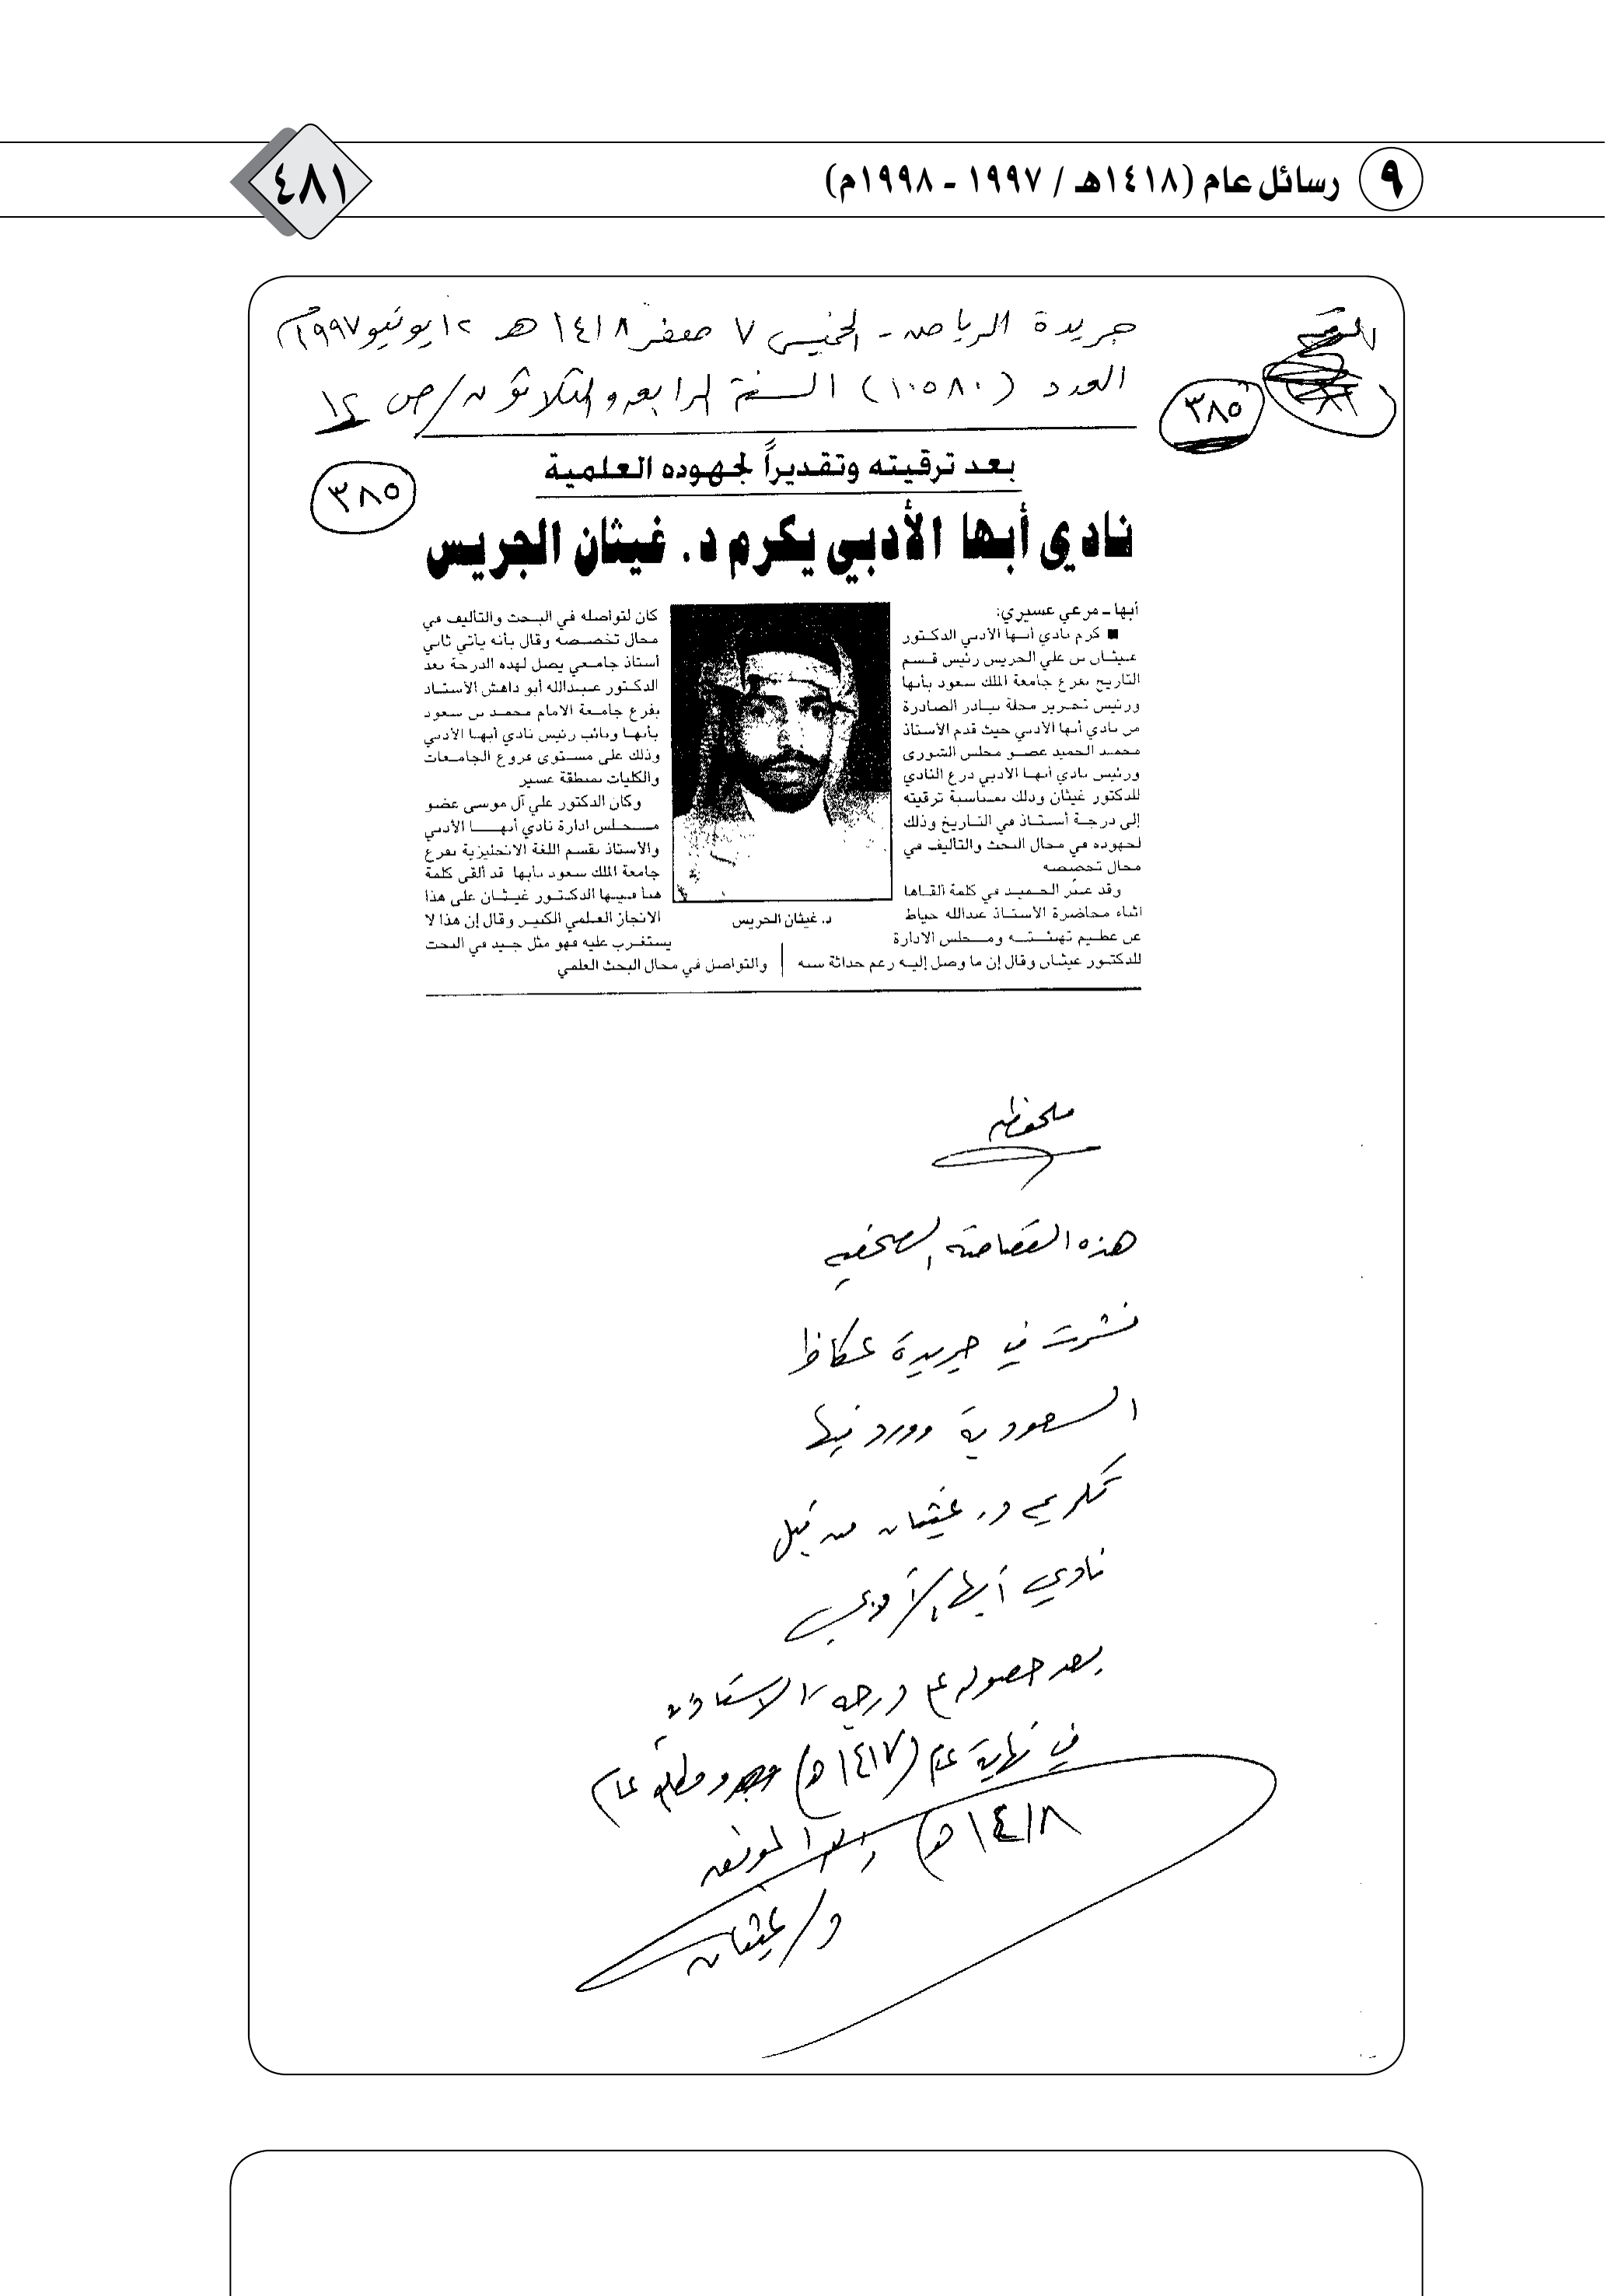 ٩ رسائل عام (١٤١٨هـ / ١٩٩٧ - ١٩٩٨م)
٤٨١
جريدة الرياض - الخميس ٧ صفر ١٤١٨ هـ ١٢ يونيو ١٩٩٧م
العدد (١٠٥٨٠) السنة الرابعة والثلاثون / ص ١٤
٣٨٥
٣٨٥
بعد ترقيته وتقديراً لجهوده العلمية
نادي أبها الأدبي يكرم د. غيثان الجريس
أبها ـ مرعي عسيري:
■ كرم نادي أبها الأدبي الدكتور
غيثان بن علي الجريس رئيس قسم
التاريخ بفرع جامعة الملك سعود بأبها
ورئيس تحرير مجلة بيادر الصادرة
من نادي أبها الأدبي حيث قدم الأستاذ
محمد الحميد عضو مجلس الشورى
ورئيس نادي أبها الأدبي درع النادي
للدكتور غيثان وذلك بمناسبة ترقيته
إلى درجة أستاذ في التاريخ وذلك
لجهوده في مجال البحث والتأليف في
مجال تخصصه
وقد عبّر الحميد في كلمة ألقاها
اثناء محاضرة الأستاذ عبدالله خياط
عن عظيم تهنئته ومجلس الادارة
للدكتور غيثان وقال إن ما وصل إليه رغم حداثة سنه
كان لتواصله في البحث والتأليف في
مجال تخصصه وقال بأنه يأتي ثاني
أستاذ جامعي يصل لهذه الدرجة بعد
الدكتور عبدالله أبو داهش الأستاذ
بفرع جامعة الامام محمد بن سعود
بأبها ونائب رئيس نادي أبها الأدبي
وذلك على مستوى فروع الجامعات
والكليات بمنطقة عسير
وكان الدكتور علي آل موسى عضو
مجلس ادارة نادي أبها الأدبي
والأستاذ بقسم اللغة الانجليزية بفرع
جامعة الملك سعود بأبها قد ألقى كلمة
هنأ فيها الدكتور غيثان على هذا
الانجاز العلمي الكبير وقال إن هذا لا
يستغرب عليه فهو مثل جيد في البحث
والتواصل في مجال البحث العلمي
د. غيثان الجريس
ملحوظه
هذه القصاصة الصحفيه
نشرت في جريدة عكاظ
السعودية وورد فيها
تكريم د. غيثان من قبل
نادي أبها الأدبي
بعد حصوله على درجة الاستاذية
في نهاية عام (١٤١٧هـ) ومطلع عام
١٤١٨هـ) والله الموفق
د/ غيثان